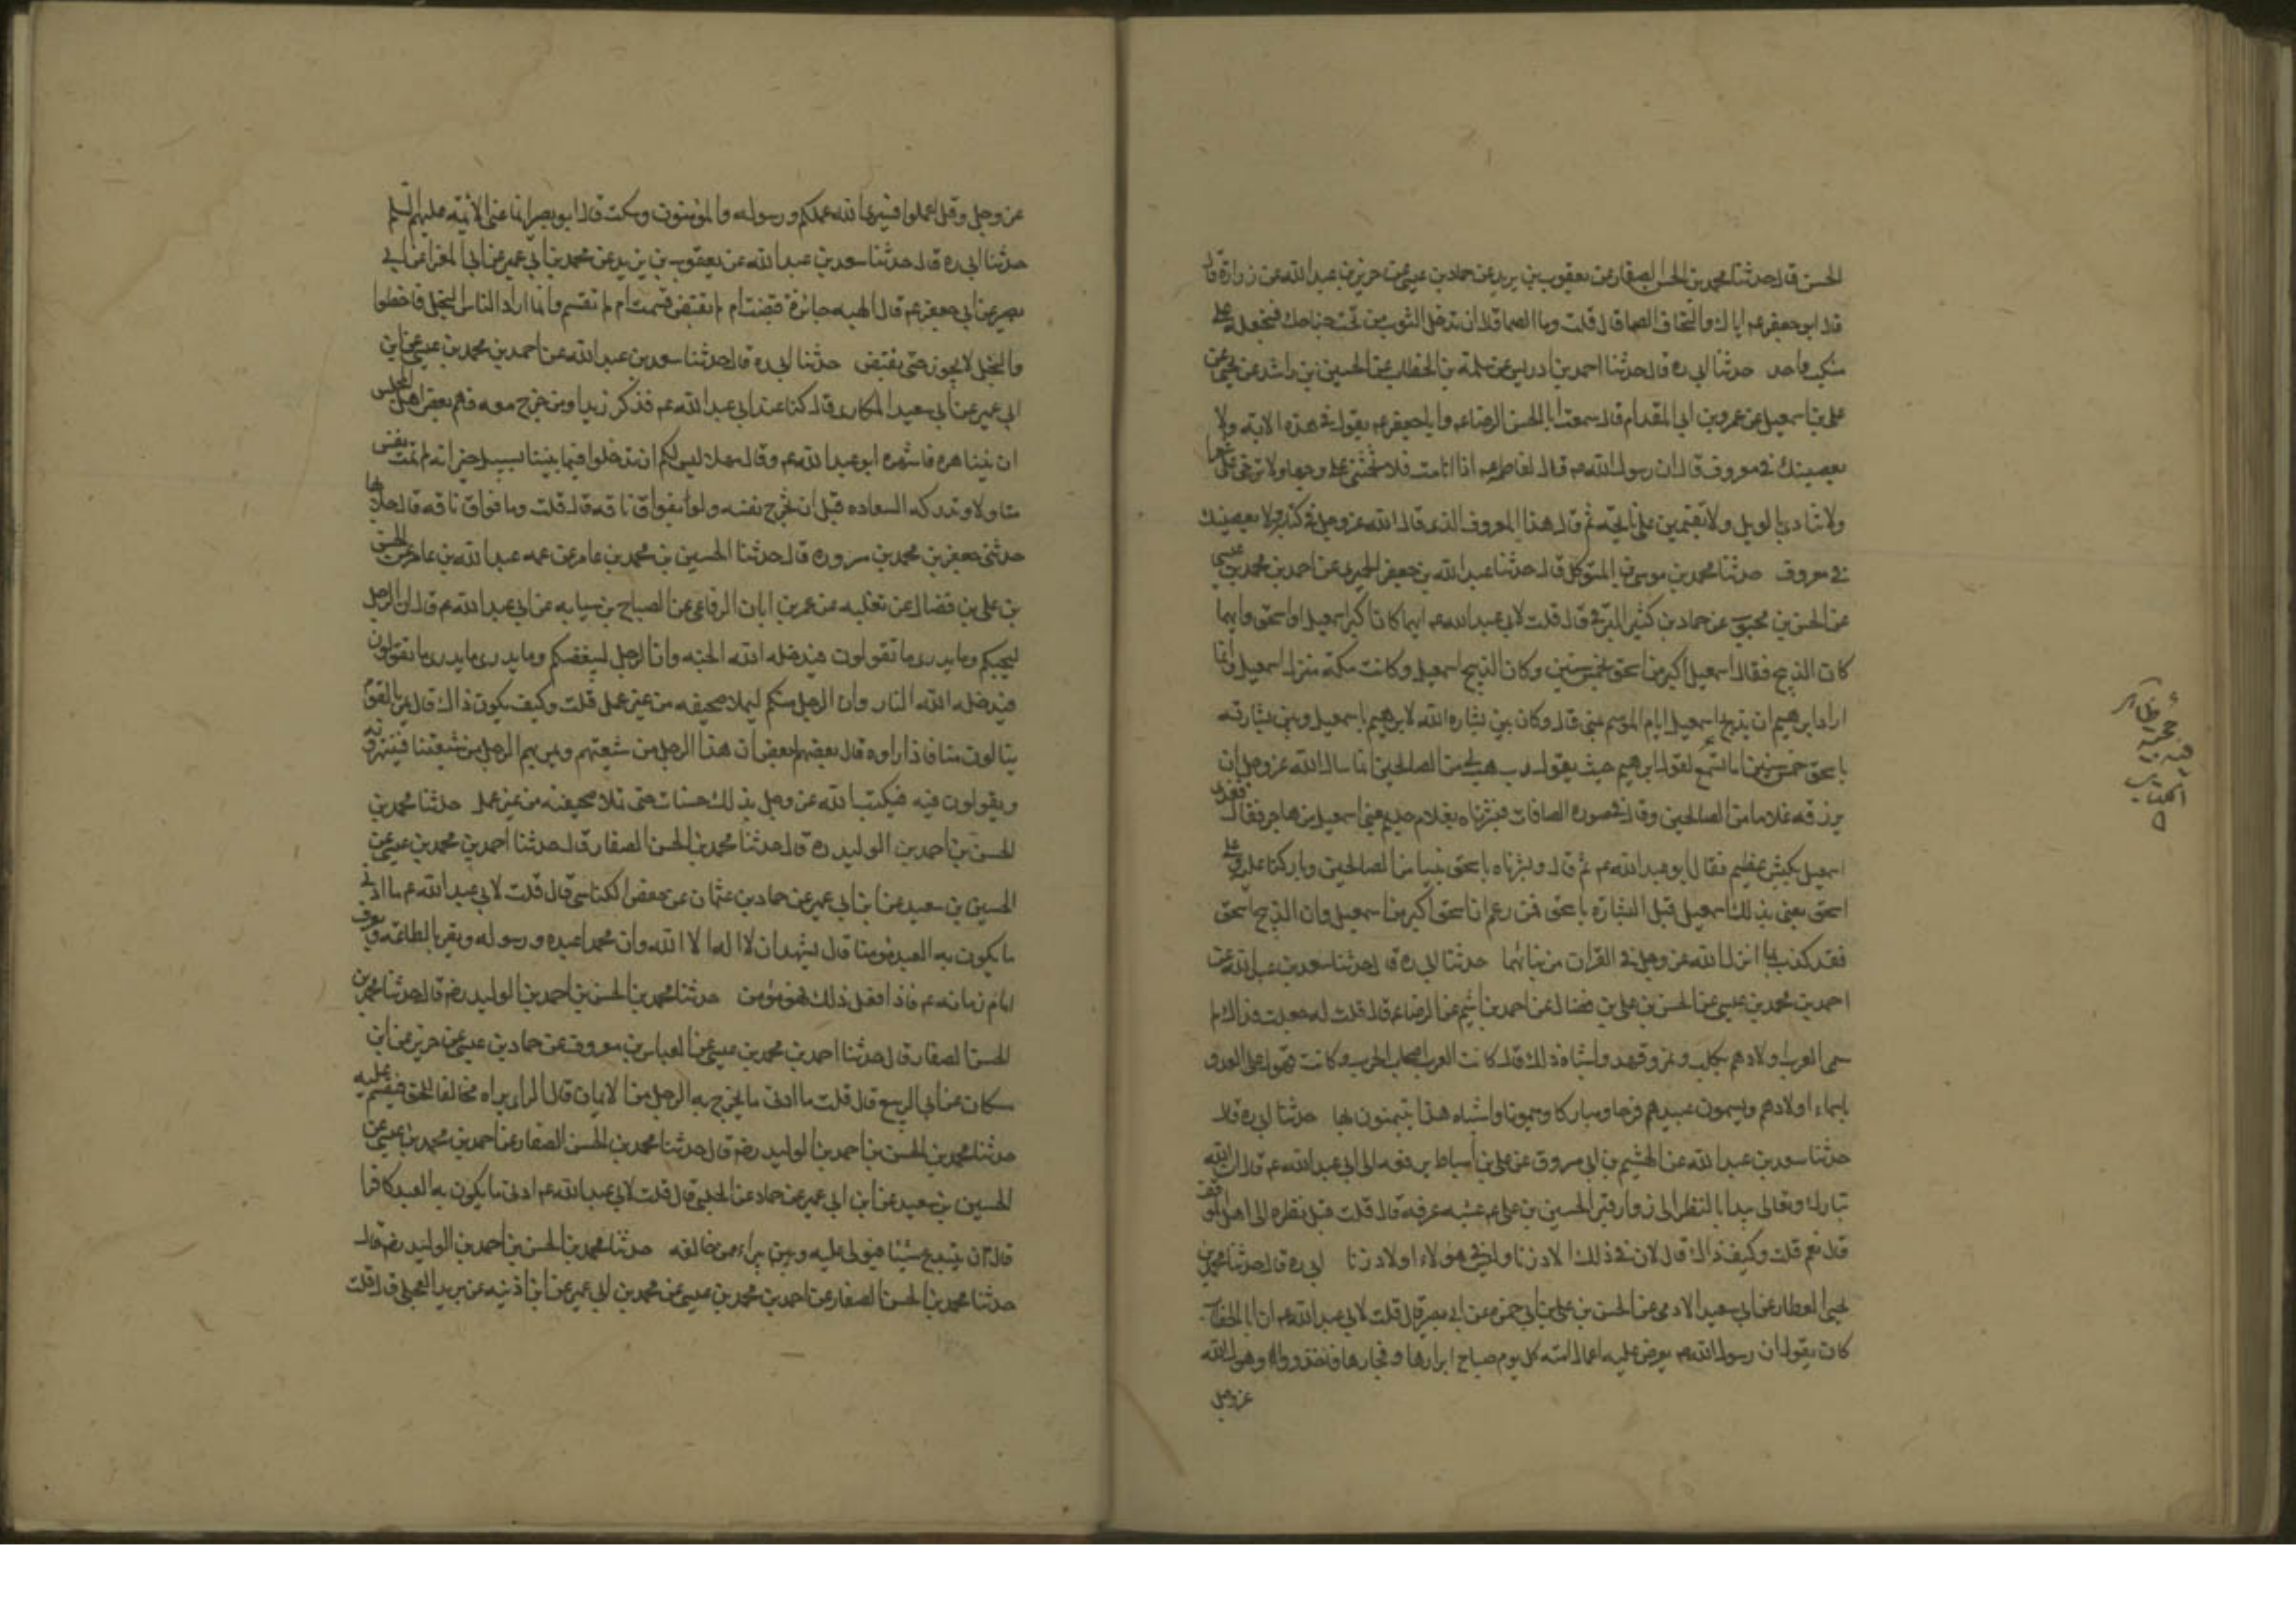 الحسن قال حدثنا محمد بن الحسن الصفار عن يعقوب بن يزيد عن حماد بن عيسى عن حريز بن عبد الله عن زرارة قال
قال ابو جعفر عم اياك والتحاف الصما قال قلت وما الصما قال ان تدخل الثوب من تحت جناحك فتجعله على
منكب واحد حدثنا ابي ره قال حدثنا احمد بن ادريس عن سلمة بن الخطاب عن الحسين بن راشد عن يحيى عن
علي بن اسمعيل عن عمرو بن ابي المقدام قال سمعت ابا الحسن الرضا عم وابا جعفر عم يقول في هذه الاية ولا
يعصينك في معروف قال ان رسول الله ص قال لفاطمه اذا انا مت فلا تخمشي علي وجها ولا ترخي علي شعرا
ولا تنادي بالويل ولا تقيمين علي نائحة ثم قال هذا المعروف الذي قال الله عز وجل في كتابه ولا يعصينك
في معروف حدثنا محمد بن موسى بن المتوكل قال حدثنا عبد الله بن جعفر الحميري عن احمد بن محمد بن عيسى
عن الحسن بن محبوب عن حماد بن كثير قال قلت لابي عبد الله عم ايهما كان اكبر اسمعيل او اسحق وايهما
كان الذبيح فقال اسمعيل اكبر من اسحق بخمس سنين وكان الذبيح اسمعيل وكانت مكة منزل اسمعيل وانما
اراد ابرهيم ان يذبح اسمعيل ايام الموسم بمنى قال وكان بين بشارة الله لابرهيم باسمعيل وبين بشارته
باسحق خمس سنين اما تسمع لقول ابرهيم حيث يقول رب هب لي من الصالحين انما سال الله عز وجل ان
يرزقه غلاما من الصالحين وقال في صورة الصافات فبشرناه بغلام حليم يعني اسمعيل من هاجر فقال ففدي
اسمعيل بكبش عظيم فقال ابو عبد الله عم ثم قال وبشرناه باسحق نبيا من الصالحين وباركنا عليه وعلى
اسحق يعني بذلك اسمعيل قبل البشارة باسحق فمن زعم ان اسحق اكبر من اسمعيل وان الذبيح اسحق
فقد كذب بما انزل الله عز وجل في القران من نبائهما حدثنا ابي ره قال حدثنا سعد بن عبد الله عن
احمد بن محمد بن عيسى عن الحسن بن علي بن فضال عن احمد بن اشيم عن الرضا عم قال قلت له جعلت فداك لم
سمى العرب اولادهم بكلب ونمر وفهد واشباه ذلك قال كانت العرب اصحاب الحرب وكانت تهول على العدو
باسماء اولادهم ويسمون عبيدهم فرجا ومباركا وميمونا واشباه هذا يتيمنون بها حدثنا ابي ره قال
حدثنا سعد بن عبد الله عن الهشيم بن ابي مسروق عن علي بن اسباط يرفعه الى ابي عبد الله عم قال ان الله
تبارك وتعالى يبدا بالنظر الى زوار قبر الحسين بن علي عم عشيه عرفه قال قلت قبل نظره الى اهل الموقف
قال نعم قلت وكيف ذاك قال لان في ذلك الاد زنا وليس في هؤلاء اولاد زنا ابي ره قال حدثنا محمد بن
يحيى العطار عن ابي سعيد الادمي عن الحسن بن علي بن ابي حمزه عن ابي بصير قال قلت لابي عبد الله عم ان ابا الخطاب
كان يقول ان رسول الله ص يعرض عليه اعمال امته كل يوم صباح ابرارها وفجارها فاحذروا وهو قول الله
عز وجل
أظاهر
عز وجل وقل اعملوا فسيرى الله عملكم ورسوله والمؤمنون وسكت قال ابو بصير انما عنى الائمه عليهم السلم
حدثنا ابي ره قال حدثنا سعد بن عبد الله عن يعقوب بن يزيد عن محمد بن ابي عمير عن ابي المغرا عن ابي
بصير عن ابي جعفر عم قال الهبه جائزة قبضت ام لم تقبض قسمت ام لم تقسم وانما اراد الناس النحل فاخطوا
والنحل لا يجوز حتى يقبض حدثنا ابي ره قال حدثنا سعد بن عبد الله عن احمد بن محمد بن عيسى عن ابن
ابي عمير عن ابي سعيد المكاري قال كنا عند ابي عبد الله عم فذكر زيد ومن خرج معه فهم بعض اهل المجلس
ان يتناوله فانتهره ابو عبد الله عم وقال مهلا ليس لكم ان تدخلوا فيما بيننا الا بسبيل خير انه لم تمت نفس
منا الا وتدركه السعاده قبل ان تخرج نفسه ولو بفواق ناقه قال قلت وما فواق ناقه قال حلابها
حدثني جعفر بن محمد بن مسروره قال حدثنا الحسين بن محمد بن عامر عن عمه عبد الله بن عامر عن الحسن
بن علي بن فضال عن ثعلبه عن عمر بن ابان الرفاعي عن الصباح بن سيابه عن ابي عبد الله عم قال ان الرجل
ليحبكم وما يدري ما تقولون فيدخله الله الجنه وان الرجل ليبغضكم وما يدري ما يدري ما تقولون
فيدخله الله النار وان الرجل منكم ليملا صحيفه من غير عمل قلت وكيف يكون ذاك قال يمر بالقوم
ينالون منا فاذا راوه قال بعضهم لبعض ان هذا الرجل من شيعتهم ويمر بهم الرجل من شيعتنا فينهرونه
ويقولون فيه فيكتب الله عز وجل بذلك حسنات حتى تملا صحيفته من غير عمل حدثنا محمد بن
الحسن بن احمد بن الوليد ره قال حدثنا محمد بن الحسن الصفار قال حدثنا احمد بن محمد بن عيسى عن
الحسين بن سعيد عن ابن ابي عمير عن حماد بن عثمان عن جعفر الكناسي قال قلت لابي عبد الله عم ما ادنى
ما يكون به العبد مؤمنا قال يشهد ان لا اله الا الله وان محمدا عبده ورسوله ويقر بالطاعة ويعرف
امام زمانه عم فاذا فعل ذلك فهو مؤمن حدثنا محمد بن الحسن بن احمد بن الوليد رضه قال حدثنا محمد بن
الحسن الصفار قال حدثنا احمد بن محمد بن عيسى عن العباس بن معروف عن حماد بن عيسى عن حريز عن ابن
مسكان عن ابي الربيع قال قلت ما ادنى ما يخرج به الرجل من الايمان قال الراي يراه مخالفا للحق فيقيم عليه
حدثنا محمد بن الحسن بن احمد بن الوليد رضه قال حدثنا محمد بن الحسن الصفار عن احمد بن محمد بن عيسى عن
الحسين بن سعيد عن ابن ابي عمير عن حماد عن الحلبي قال قلت لابي عبد الله عم ادنى ما يكون به العبد كافرا
قال ان يبتدع شيئا فيولى عليه ويبرا ممن خالفه حدثنا محمد بن الحسن بن احمد بن الوليد رضه قال
حدثنا محمد بن الحسن الصفار عن احمد بن محمد بن عيسى عن محمد بن ابي عمير عن ابن اذينه عن بريد العجلي قال قلت